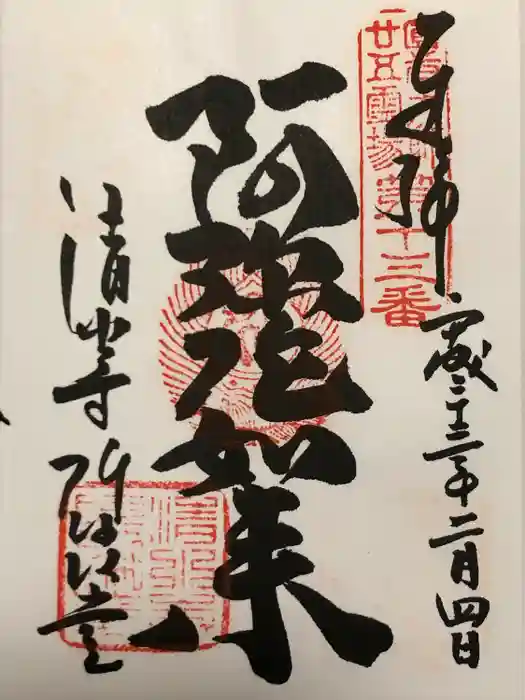 奉拝
圓光大師
廿五霊場第十三番
平成二十三年二月四日
阿弥陀如来
清水寺 阿弥陀堂